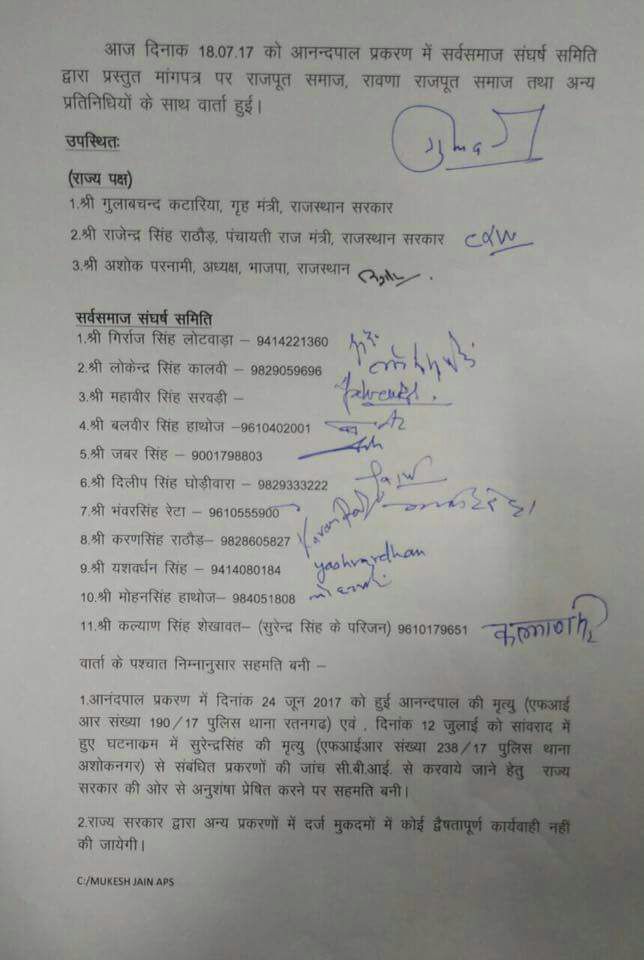 आज दिनाक 18.07.17 को आनन्दपाल प्रकरण में सर्वसमाज संघर्ष समिति
द्वारा प्रस्तुत मांगपत्र पर राजपूत समाज, रावणा राजपूत समाज तथा अन्य
प्रतिनिधियों के साथ वार्ता हुई।
उपस्थितः
(राज्य पक्ष)
1.श्री गुलाबचन्द कटारिया, गृह मंत्री, राजस्थान सरकार
2.श्री राजेन्द्र सिंह राठौड़, पंचायती राज मंत्री, राजस्थान सरकार
3.श्री अशोक परनामी, अध्यक्ष, भाजपा, राजस्थान
सर्वसमाज संघर्ष समिति
1.श्री गिर्राज सिंह लोटवाड़ा – 9414221360
2.श्री लोकेन्द्र सिंह कालवी – 9829059696
3.श्री महावीर सिंह सरवड़ी –
4.श्री बलवीर सिंह हाथोज -9610402001
5.श्री जबर सिंह – 9001798803
6.श्री दिलीप सिंह घोड़ीवारा – 9829333222
7.श्री भंवरसिंह रेटा – 9610555900
8.श्री करणसिंह राठौड़– 9828605827
9.श्री यशवर्धन सिंह – 9414080184 yashvardhan
10.श्री मोहनसिंह हाथोज – 984051808
11.श्री कल्याण सिंह शेखावत– (सुरेन्द्र सिंह के परिजन) 9610179651
वार्ता के पश्चात निम्नानुसार सहमति बनी –
1.आनंदपाल प्रकरण में दिनांक 24 जून 2017 को हुई आनन्दपाल की मृत्यु (एफआई
आर संख्या 190/17 पुलिस थाना रतनगढ) एवं . दिनांक 12 जुलाई को सांवराद में
हुए घटनाक्रम में सुरेन्द्रसिंह की मृत्यु (एफआईआर संख्या 238/17 पुलिस थाना
अशोकनगर) से संबंधित प्रकरणों की जांच सी.बी.आई. से करवाये जाने हेतु राज्य
सरकार की ओर से अनुशंषा प्रेषित करने पर सहमति बनी।
2.राज्य सरकार द्वारा अन्य प्रकरणों में दर्ज मुकदमों में कोई द्वैषतापूर्ण कार्यवाही नहीं
की जायेगी।
C:/MUKESH JAIN APS